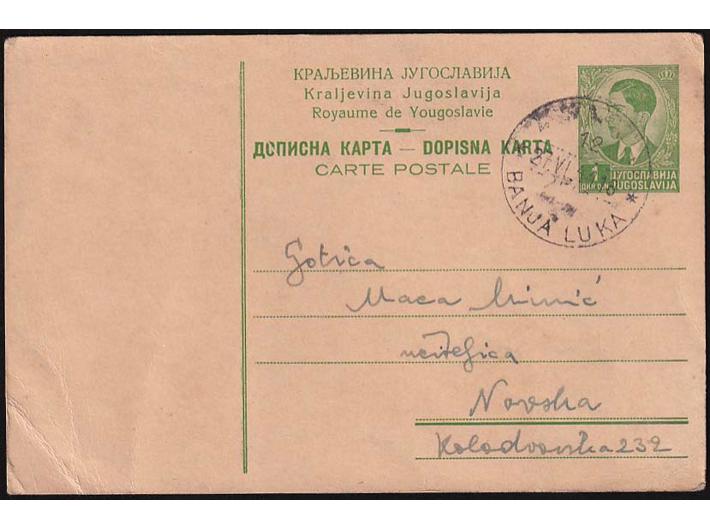 КРАЉЕВИНА ЈУГОСЛАВИЈА
Kraljevina Jugoslavija
Royaume de Yougoslavie
ДОПИСНА КАРТА — DOPISNA KARTA
CARTE POSTALE
ЈУГОСЛАВИЈА
JUGOSLAVIJA
1
BANJA LUKA *
Gotica
Maca
učiteljica
Novska
Kolodvorska 232